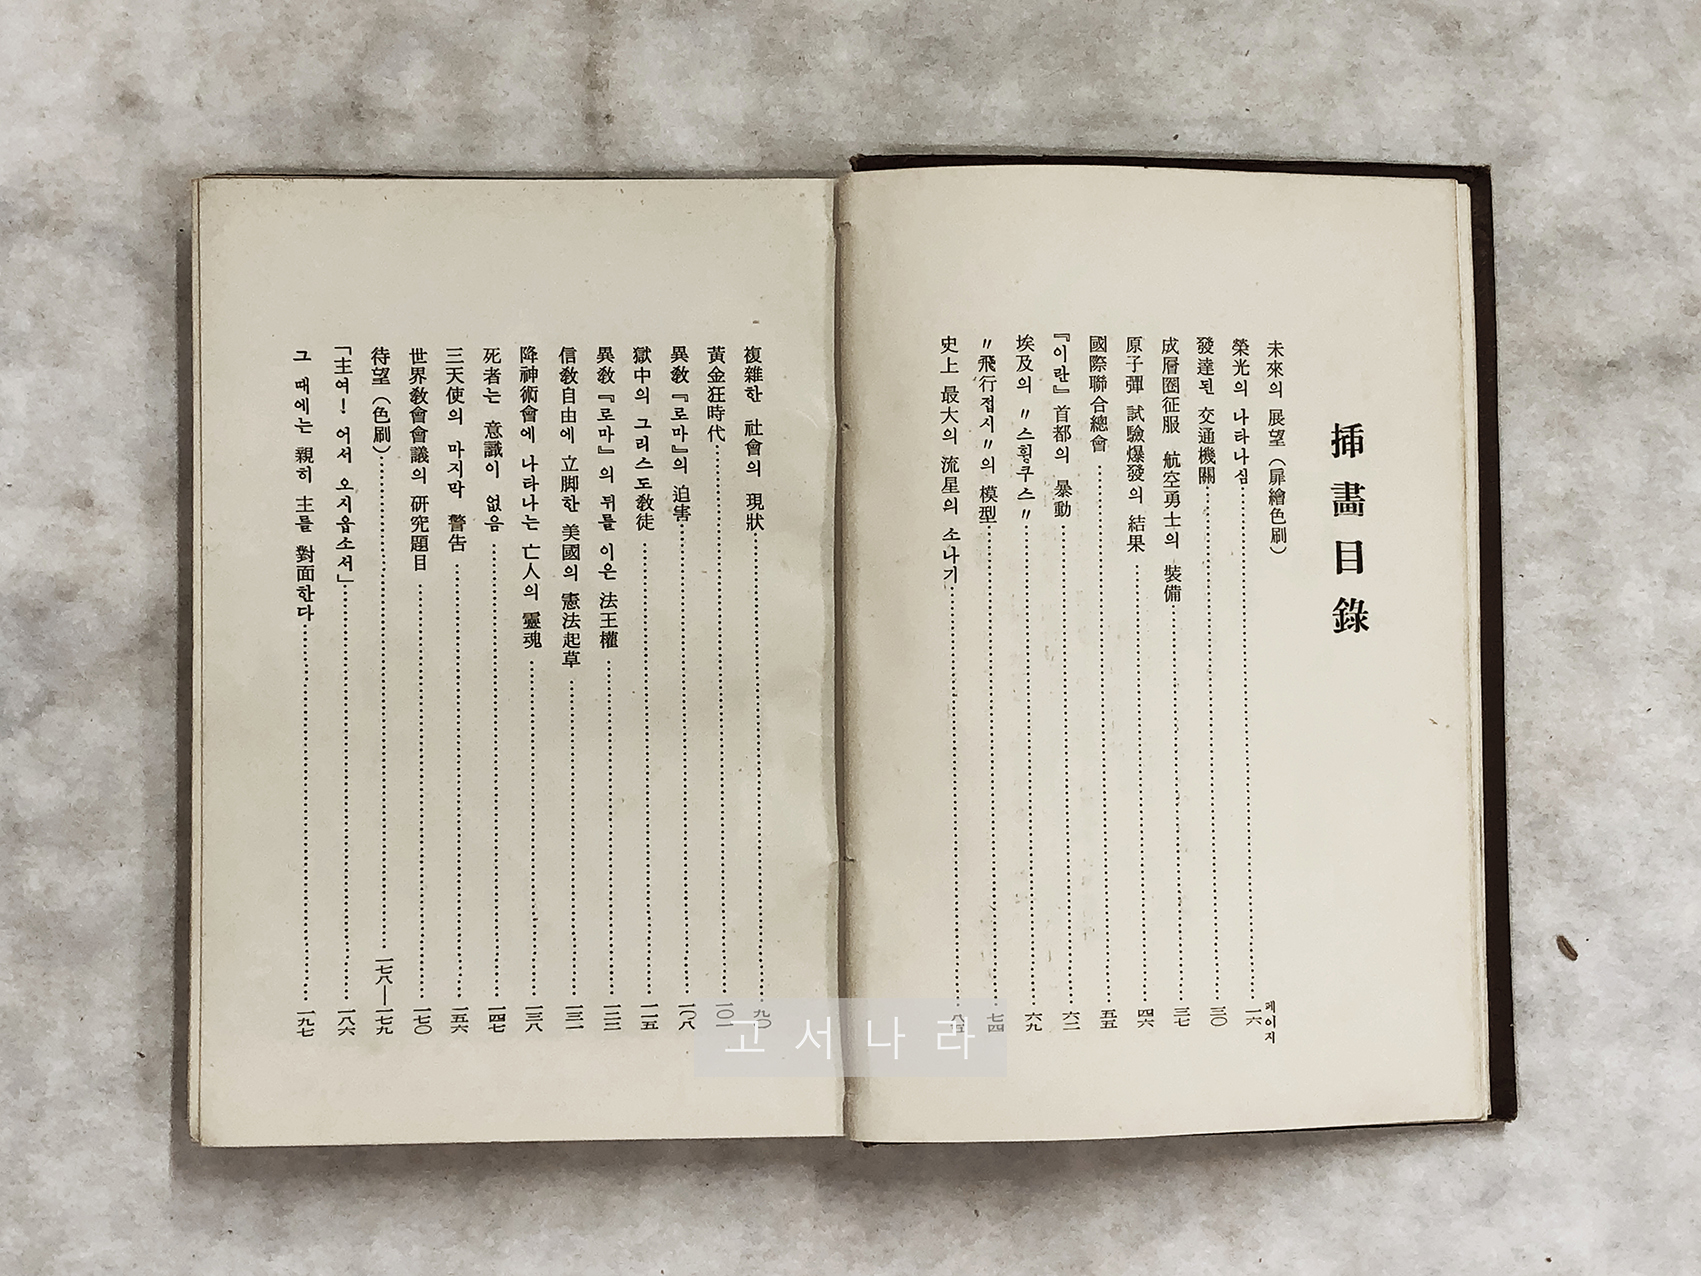 揷畫目錄
페이지
未來의 展望(扉繪色刷)
榮光의 나타나심 一六
發達된 交通機關 三〇
成層圈征服 航空勇士의 裝備 三七
原子彈 試驗爆發의 結果 四六
國際聯合總會 五五
『이란』首都의 暴動 六二
埃及의 〃스횡쿠스〃 六九
〃飛行접시〃의 模型 七四
史上 最大의 流星의 소나기 八五
複雜한 社會의 現狀 九〇
黃金狂時代 一〇一
異敎『로마』의 迫害 一〇八
獄中의 그리스도敎徒 一一五
異敎『로마』의 뒤를 이은 法王權 一二三
信敎自由에 立脚한 美國의 憲法起草 一三一
降神術會에 나타나는 亡人의 靈魂 一三八
死者는 意識이 없음 一四七
三天使의 마지막 警告 一五六
世界敎會會議의 硏究題目 一七〇
待望(色刷) 一七八—一七九
「主여! 어서 오시옵소서」 一八六
그 때에는 親히 主를 對面한다 一九七
고서나라